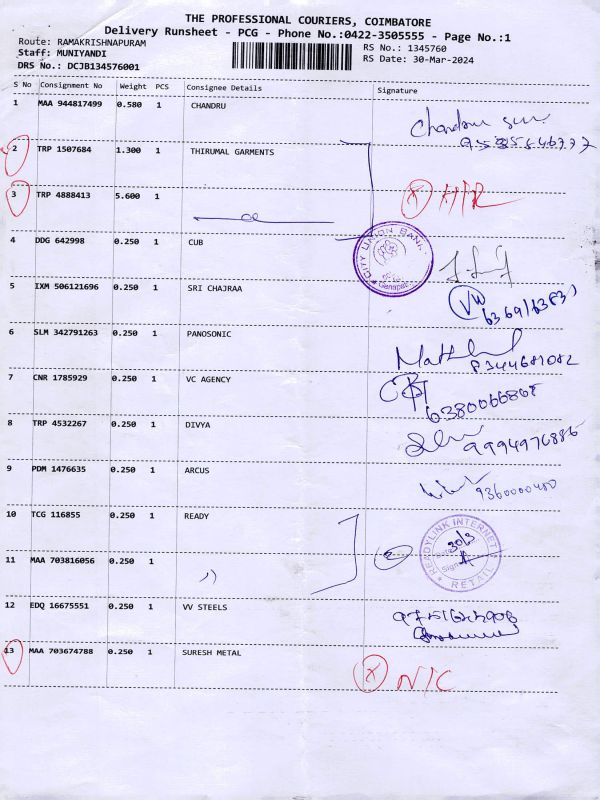 THE PROFESSIONAL COURIERS, COIMBATORE
Delivery Runsheet - PCG - Phone No.:0422-3505555 - Page No.:1
Route: RAMAKRISHNAPURAM
Staff: MUNIYANDI
DRS No.: DCJB134576001
RS No.: 1345760
RS Date: 30-Mar-2024
S No Consignment No Weight PCS Consignee Details Signature
1 MAA 944817499 0.580 1 CHANDRU
Chandru
2 TRP 1507684 1.300 1 THIRUMAL GARMENTS
3 TRP 4888413 5.600 1
X
4 DDG 642998 0.250 1 CUB
CITY UNION BANK
Ganapathy
5 IXM 506121696 0.250 1 SRI CHAJRAA
VW
6 SLM 342791263 0.250 1 PANOSONIC
8344681082
7 CNR 1785929 0.250 1 VC AGENCY
6380066868
8 TRP 4532267 0.250 1 DIVYA
9994976886
9 PDM 1476635 0.250 1 ARCUS
9360000480
10 TCG 116855 0.250 1 READY
2
READYLINK INTERNET
30/3
RETAIL
11 MAA 703816056 0.250 1
12 EDQ 16675551 0.250 1 VV STEELS
13 MAA 703674788 0.250 1 SURESH METAL
X N/C